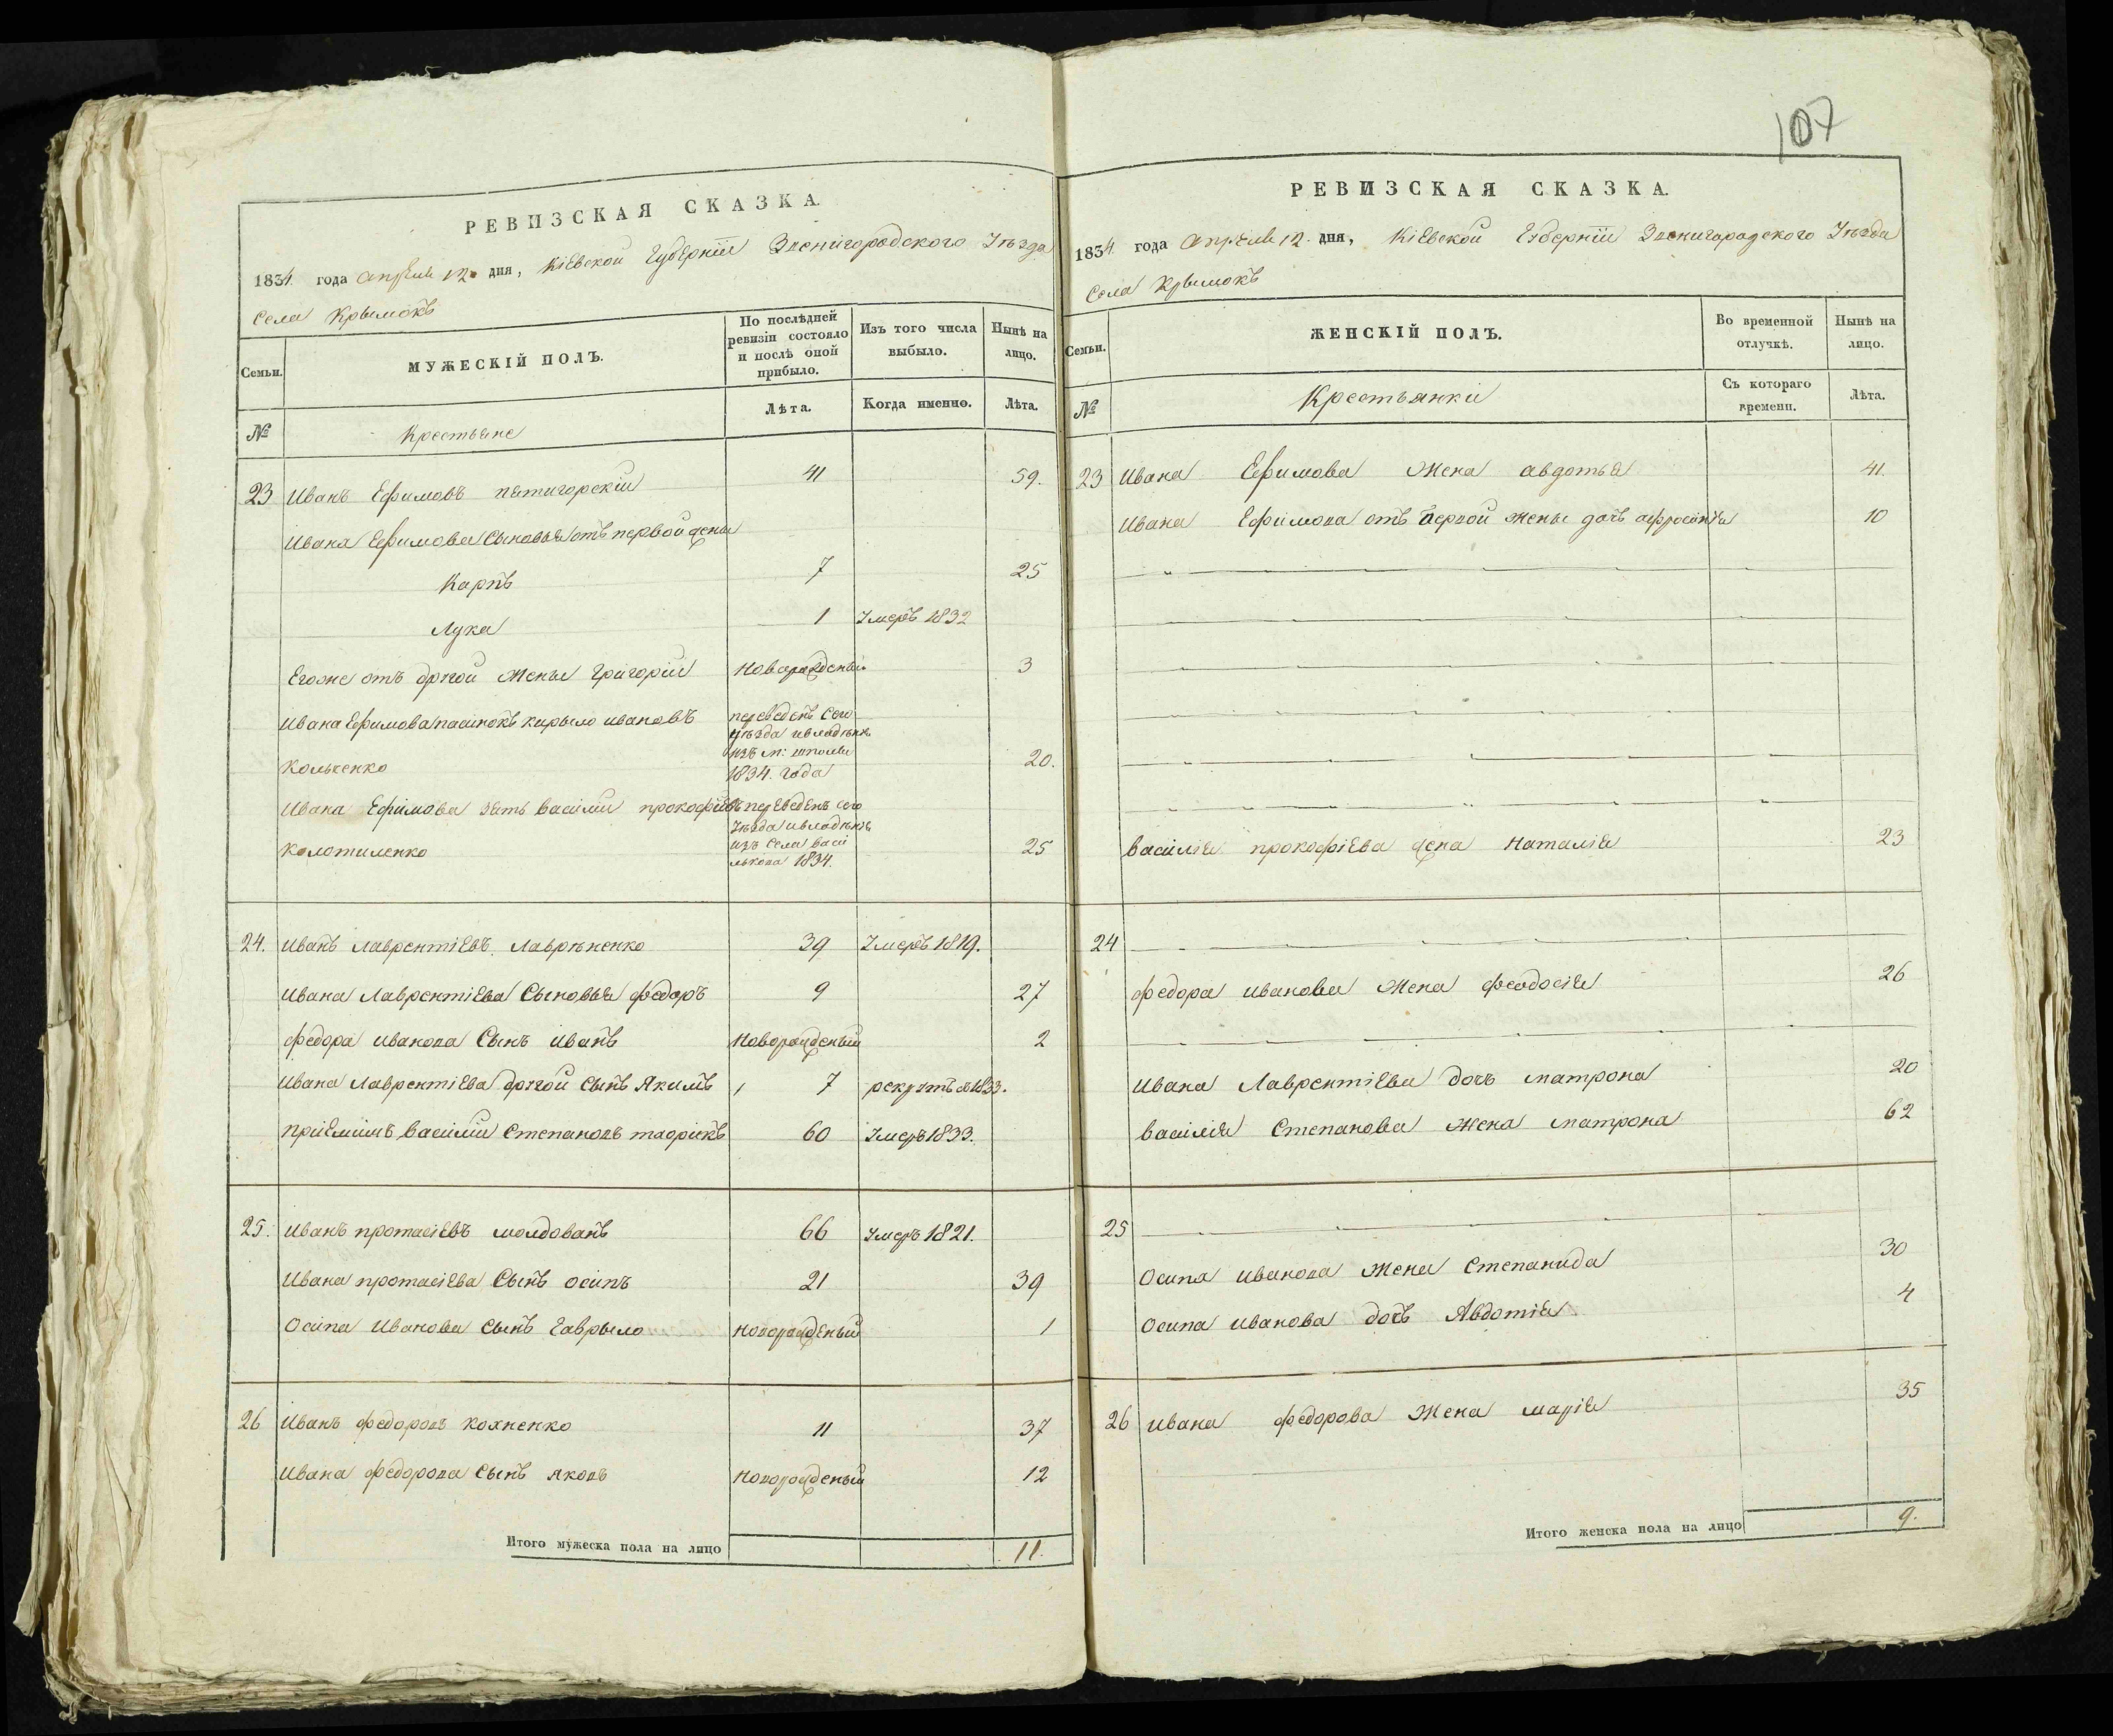 107
РЕВИЗСКАЯ СКАЗКА.
1834 года Апреля 12 дня, Кіевской Губерніи Звенигородского Уѣзда
Села Крымокъ
Семьи.
МУЖЕСКІЙ ПОЛЪ.
По послѣдней ревизіи состояло и послѣ оной прибыло.
Изъ того числа выбыло.
Нынѣ на лицо.
№
Крестьяне
Лѣта.
Когда именно.
Лѣта.
23 Иванъ Ефимовъ пятигорскій 41 59.
Ивана Ефимова Сыновья отъ первой жены
Карпъ 7 25
Лука 1 Умеръ 1832
Егоже отъ другой жены Григорій Новорожденый 3
Ивана Ефимова пасинокъ кирыло ивановъ
Кольченко
переведенъ Сего
уѣзда ивладѣнія
изъ м: шполы
1834. года
20.
Ивана Ефимова зять василій прокофіевъ
Колотиленко
переведенъ сего
Уѣзда ивладѣнія
изъ Села Васи
лькова 1834.
25
24. Иванъ лаврентіевъ Лаврѣненко 39 Умеръ 1819.
Ивана Лаврентіева Сыновья федоръ 9 27
федора иванова Сынъ иванъ Новорожденый 2
Ивана Лаврентіева другой сынъ Якимъ 7 рекрутъ в 1833.
Пріемишъ василій Степановъ 60 Умеръ 1833.
25. Иванъ протасіевъ молдованъ 66 Умеръ 1821.
Ивана протасіева Сынъ осипъ 21 39
Осипа Иванова Сынъ гаврыло новорожденый 1
26 Иванъ федоровъ кохненко 11 37
Ивана федорова Сынъ яковъ новорожденый 12
Итого мужеска пола на лицо 11.
РЕВИЗСКАЯ СКАЗКА.
1834 года Апреля 12 дня, Кіевской Губерніи Звенигородского Уѣзда
Села Крымокъ
Семьи.
ЖЕНСКІЙ ПОЛЪ.
Во временной отлучкѣ.
Нынѣ на лицо.
№
Крестьянки
Съ котораго времени.
Лѣта.
23 Ивана Ефимова Жена авдотья 41.
Ивана Ефимова отъ первой жены дочъ афросинія 10
василія прокофіева жена Наталія 23
24
федора иванова Жена феодосія 26
Ивана Лаврентіева дочъ матрона 20
василія Степанова жена матрона 62
25
Осипа иванова жена Степанида 30
Осипа иванова дочъ Авдотія 4
26 Ивана федорова Жена марія 35
Итого женска пола на лицо 9.